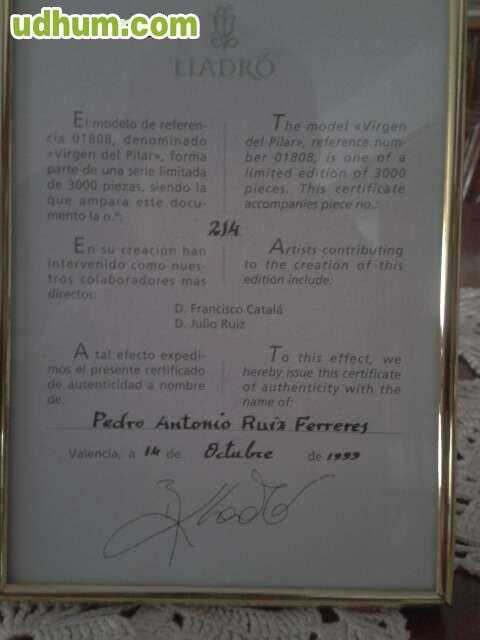 udhum.com
LLADRÓ
El modelo de referen-
cia 01808, denominado
«Virgen del Pilar», forma
parte de una serie limitada
de 3000 piezas, siendo la
que ampara este docu-
mento la n.º:
The model «Virgen
del Pilar», reference num-
ber 01808, is one of a
limited edition of 3000
pieces. This certificate
accompanies piece no.:
214
En su creación han
intervenido como nues-
tros colaboradores mas
directos:
Artists contributing
to the creation of this
edition include:
D. Francisco Catalá
D. Julio Ruiz
A tal efecto expedi-
mos el presente certificado
de autenticidad a nombre
de:
To this effect, we
hereby issue this certificate
of authenticity with the
name of:
Pedro Antonio Ruiz Ferreres
Valencia, a 14 de Octubre de 1999